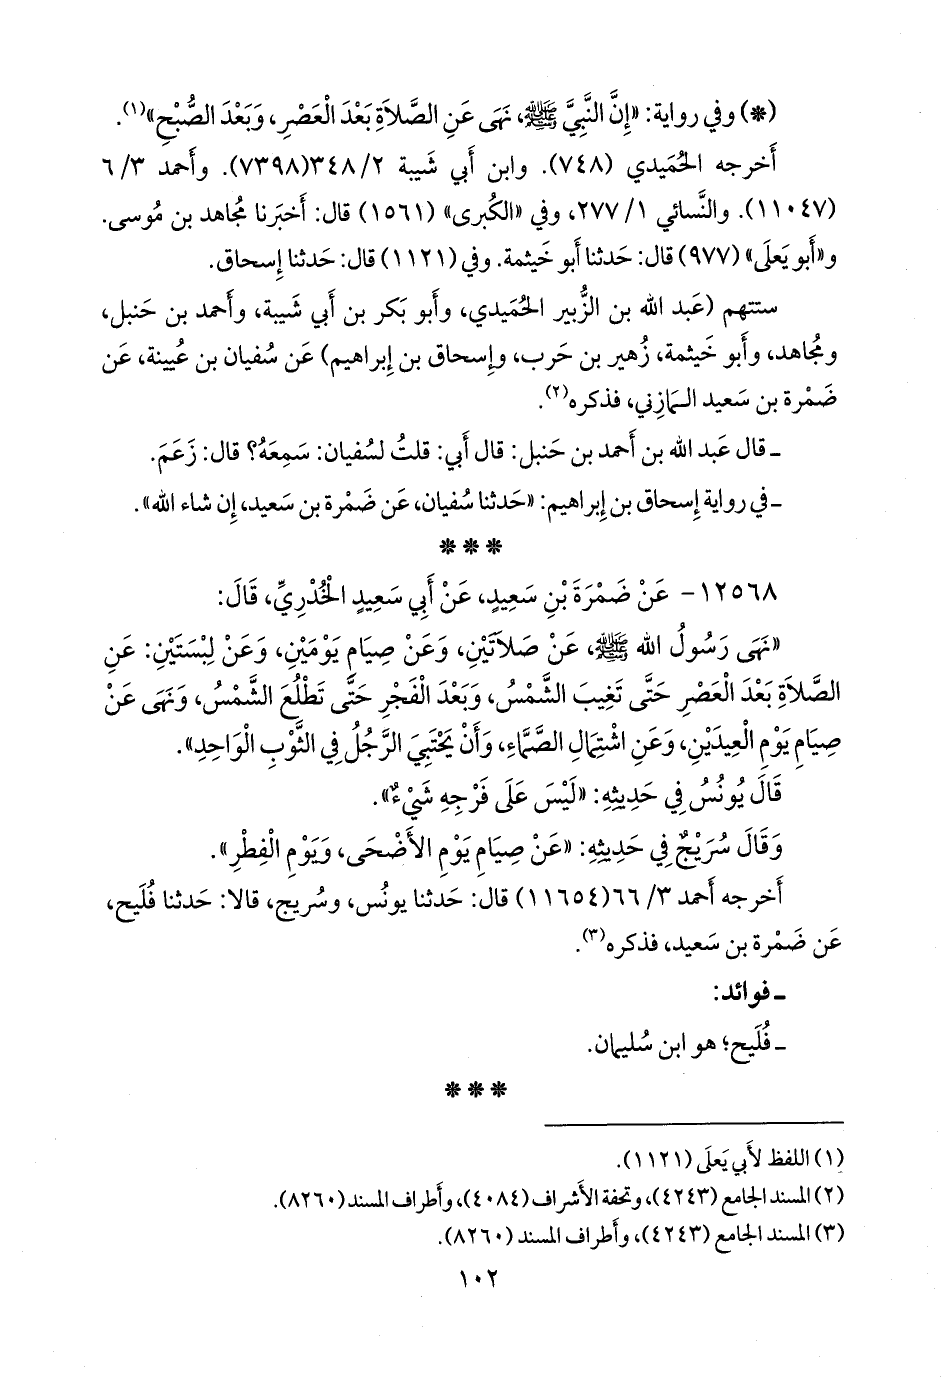 (*) وفي رواية: «إِنَّ النَّبِيَّ ﷺ، نَهَى عَنِ الصَّلاَةِ بَعْدَ الْعَصْرِ، وَبَعْدَ الصُّبْحِ»(١).
أَخرجه الحُمَيدي (٧٤٨). وابن أَبي شَيبة ٢/ ٣٤٨(٧٣٩٨). وأَحمد ٣/ ٦
(١١٠٤٧). والنَّسائي ١/ ٢٧٧، وفي «الكُبرى» (١٥٦١) قال: أَخبَرنا مُجاهد بن مُوسى.
و«أَبو يَعلَى» (٩٧٧) قال: حَدثنا أَبو خَيثمة. وفي (١١٢١) قال: حَدثنا إِسحاق.
ستتهم (عَبد الله بن الزُّبير الحُمَيدي، وأَبو بَكر بن أَبي شَيبة، وأَحمد بن حَنبل،
ومُجاهد، وأَبو خَيثمة، زُهير بن حَرب، وإِسحاق بن إِبراهيم) عَن سُفيان بن عُيينة، عَن
ضَمْرة بن سَعيد المازِني، فذكره(٢).
ـ قال عَبد الله بن أَحمد بن حَنبل: قال أَبي: قلتُ لسُفيان: سَمِعَهُ؟ قال: زَعَمَ.
ـ في رواية إِسحاق بن إِبراهيم: «حَدثنا سُفيان، عَن ضَمْرة بن سَعيد، إِن شاء الله».
* * *
١٢٥٦٨- عَنْ ضَمْرَةَ بْنِ سَعِيدٍ، عَنْ أَبِي سَعِيدٍ الْخُدْرِيِّ، قَالَ:
«نَهَى رَسُولُ الله ﷺ، عَنْ صَلاَتَيْنِ، وَعَنْ صِيَامِ يَوْمَيْنِ، وَعَنْ لِبْسَتَيْنِ: عَنِ
الصَّلاَةِ بَعْدَ الْعَصْرِ حَتَّى تَغِيبَ الشَّمْسُ، وَبَعْدَ الْفَجْرِ حَتَّى تَطْلُعَ الشَّمْسُ، وَنَهَى عَنْ
صِيَامِ يَوْمِ الْعِيدَيْنِ، وَعَنِ اشْتِمَالِ الصَّمَّاءِ، وَأَنْ يَحْتَبِيَ الرَّجُلُ فِي الثَّوْبِ الْوَاحِدِ».
قَالَ يُونُسُ فِي حَدِيثِهِ: «لَيْسَ عَلَى فَرْجِهِ شَيْءٌ».
وَقَالَ سُرَيْجٌ فِي حَدِيثِهِ: «عَنْ صِيَامِ يَوْمِ الأَضْحَى، وَيَوْمِ الْفِطْرِ».
أَخرجه أَحمد ٣/ ٦٦(١١٦٥٤) قال: حَدثنا يونُس، وسُريج، قالا: حَدثنا فُلَيح،
عَن ضَمْرة بن سَعيد، فذكره(٣).
ـ فوائد:
ـ فُلَيح؛ هو ابن سُليمان.
* * *
(١) اللفظ لأَبي يَعلَى (١١٢١).
(٢) المسند الجامع (٤٢٤٣)، وتحفة الأَشراف (٤٠٨٤)، وأَطراف المسند (٨٢٦٠).
(٣) المسند الجامع (٤٢٤٣)، وأَطراف المسند (٨٢٦٠).
١٠٢